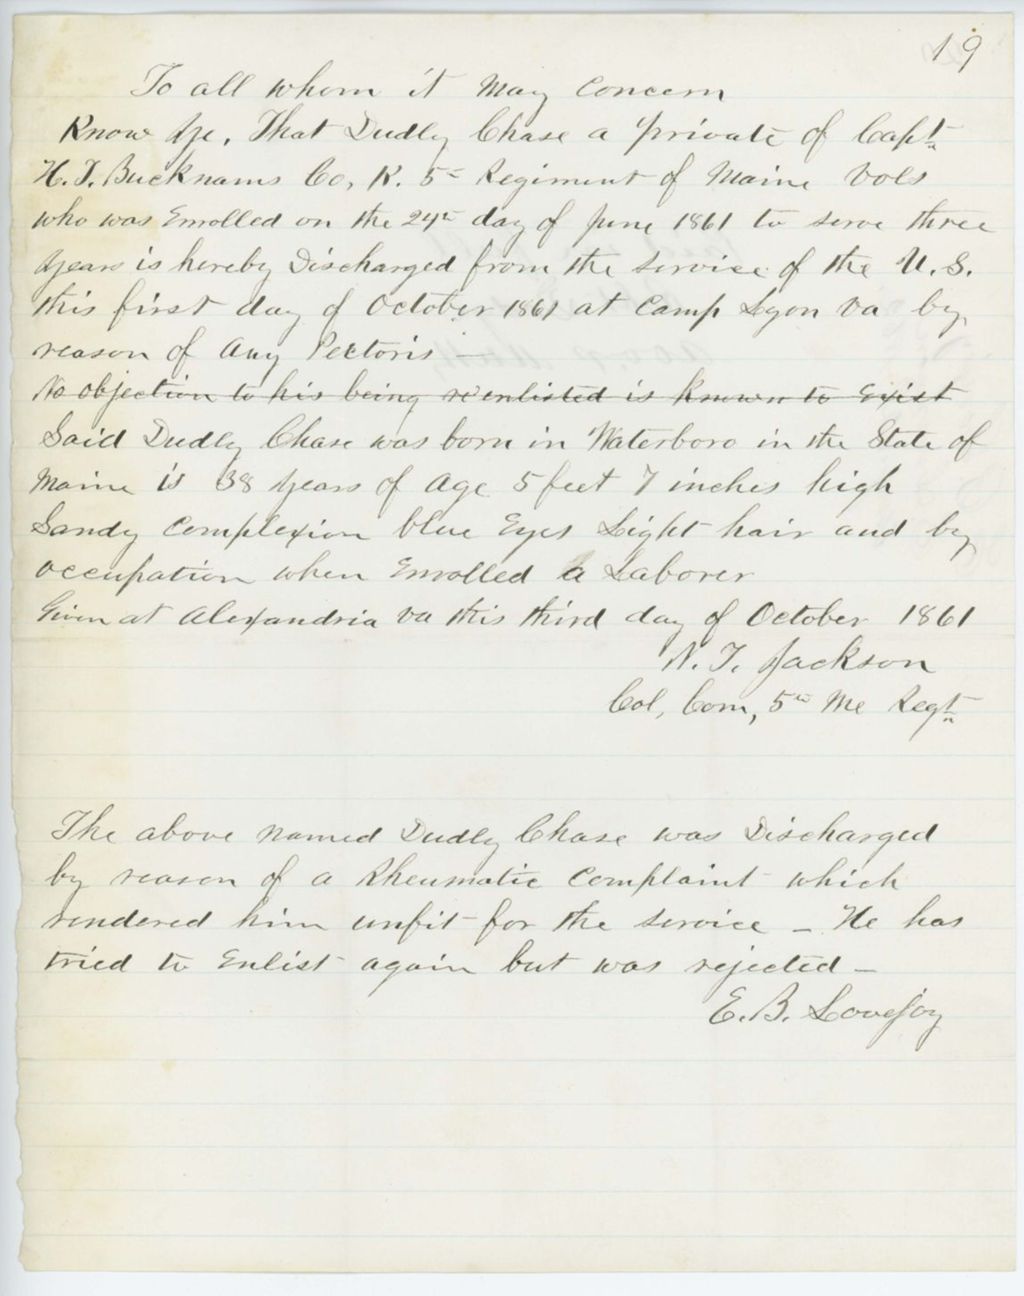 19
To all whom it May Concern
Know Ye, That Dudly Chase a private of Capt.
H. T. Bucknams Co, K. 5th Regiment of Maine Vols
who was Enrolled on the 24th day of June 1861 to serve three
years is hereby Discharged from the service of the U. S.
this first day of October 1861 at Camp Lyon Va by
reason of Ang Pectoris –
No objection to his being reenlisted is known to Exist
Said Dudly Chase was born in Waterboro in the State of
Maine is 38 years of Age 5 feet 7 inches high
Sandy Complexion blue Eyes Light hair and by
occupation when Enrolled a Laborer
Given at Alexandria Va this third day of October 1861
N. J. Jackson
Col, Com, 5th Me Regt.
The above named Dudly Chase was Discharged
by reason of a Rheumatic Complaint which
rendered him unfit for the service – He has
tried to Enlist again but was rejected –
E. B. Lovejoy